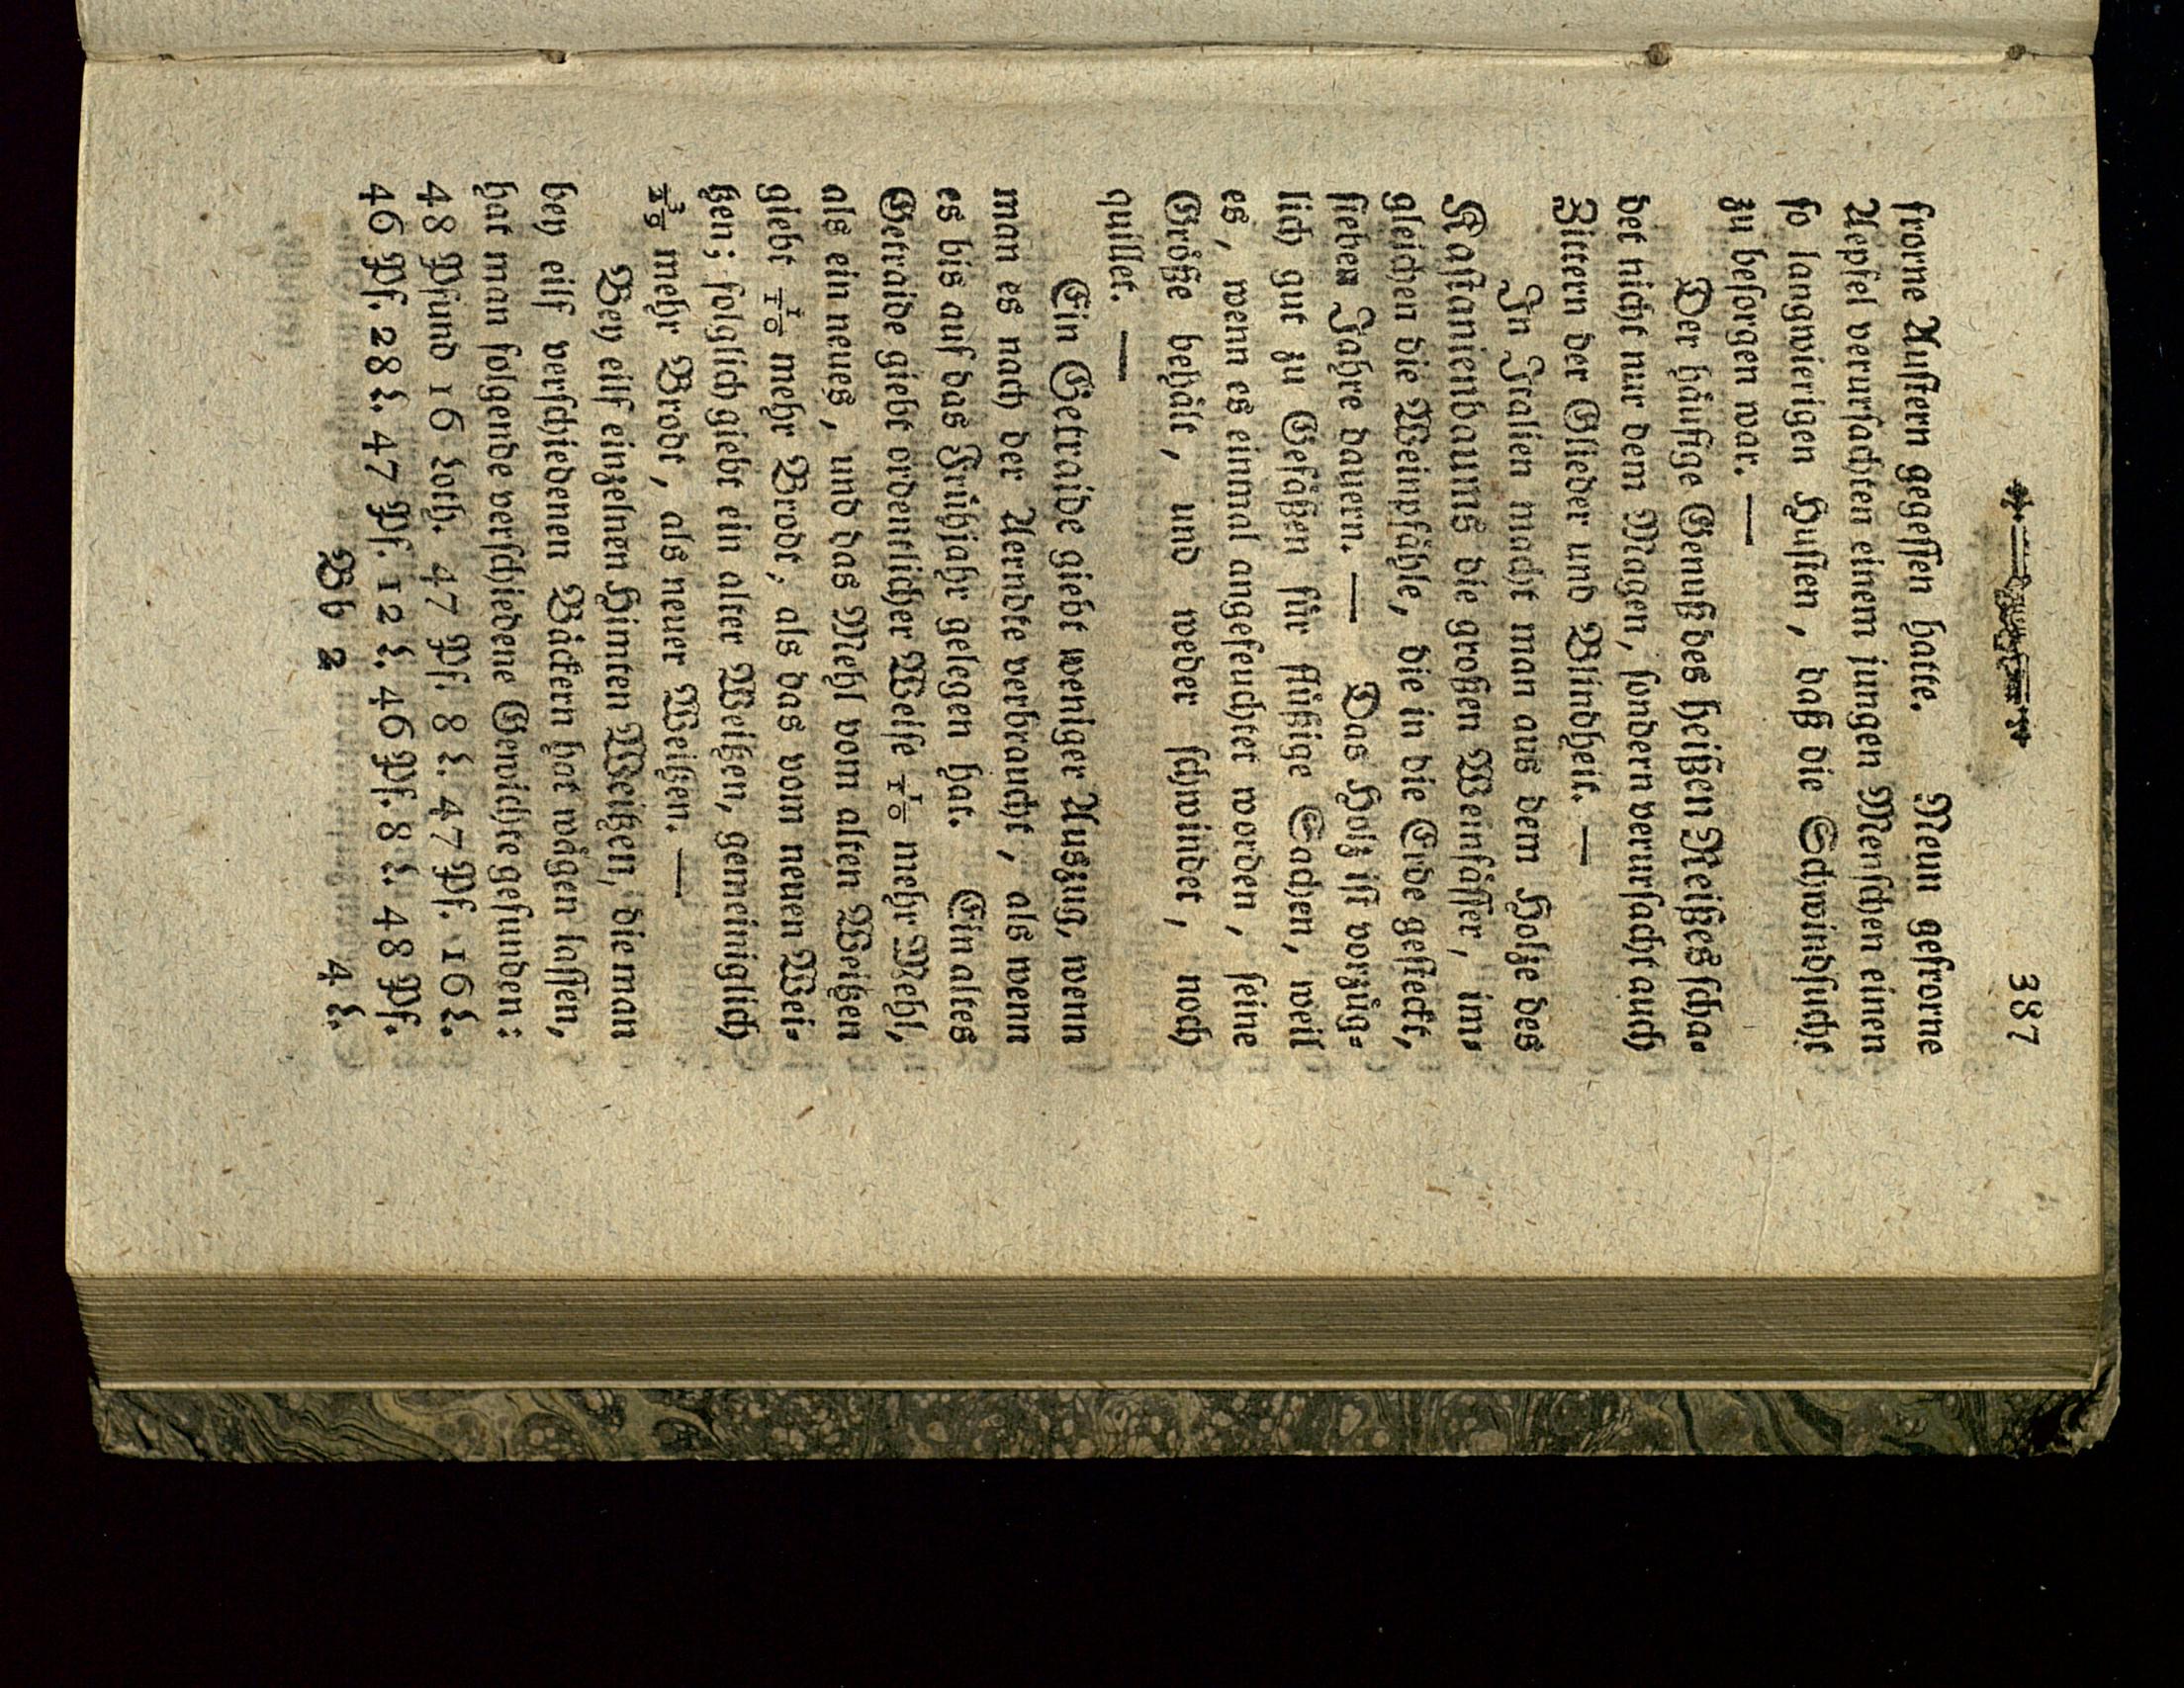 387
frorne Austern gegessen hatte. Neun gefrorne
Aepfel verursachten einem jungen Menschen einen
so langwierigen Husten, daß die Schwindsucht
zu besorgen war. —
Der häufige Genuß des heißen Reißes scha-
det nicht nur dem Magen, sondern verursacht auch
Zittern der Glieder und Blindheit. —
In Italien macht man aus dem Holze des
Kastanienbaums die großen Weinfässer, im-
gleichen die Weinpfähle, die in die Erde gesteckt,
sieben Jahre dauern. — Das Holz ist vorzüg-
lich gut zu Gefäßen für flüßige Sachen, weil
es, wenn es einmal angefeuchtet worden, seine
Größe behält, und weder schwindet, noch
quillet. —
Ein Getraide giebt weniger Auszug, wenn
man es nach der Aerndte verbraucht, als wenn
es bis auf das Frühjahr gelegen hat. Ein altes
Getraide giebt ordentlicher Weise 1/10 mehr Mehl,
als ein neues, und das Mehl vom alten Weitzen
giebt 1/10 mehr Brodt, als das vom neuen Wei-
tzen; folglich giebt ein alter Weitzen, gemeiniglich
2/10 mehr Brodt, als neuer Weitzen. —
Bey eilf einzelnen Himten Weitzen, die man
bey eilf verschiedenen Bäckern hat wägen lassen,
hat man folgende verschiedene Gewichte gefunden:
48 Pfund 16 Loth. 47 Pf. 8 L. 47 Pf. 16 L.
46 Pf. 28 L. 47 Pf. 12 L. 46 Pf. 8 L. 48 Pf.
Bb 2 4 L.